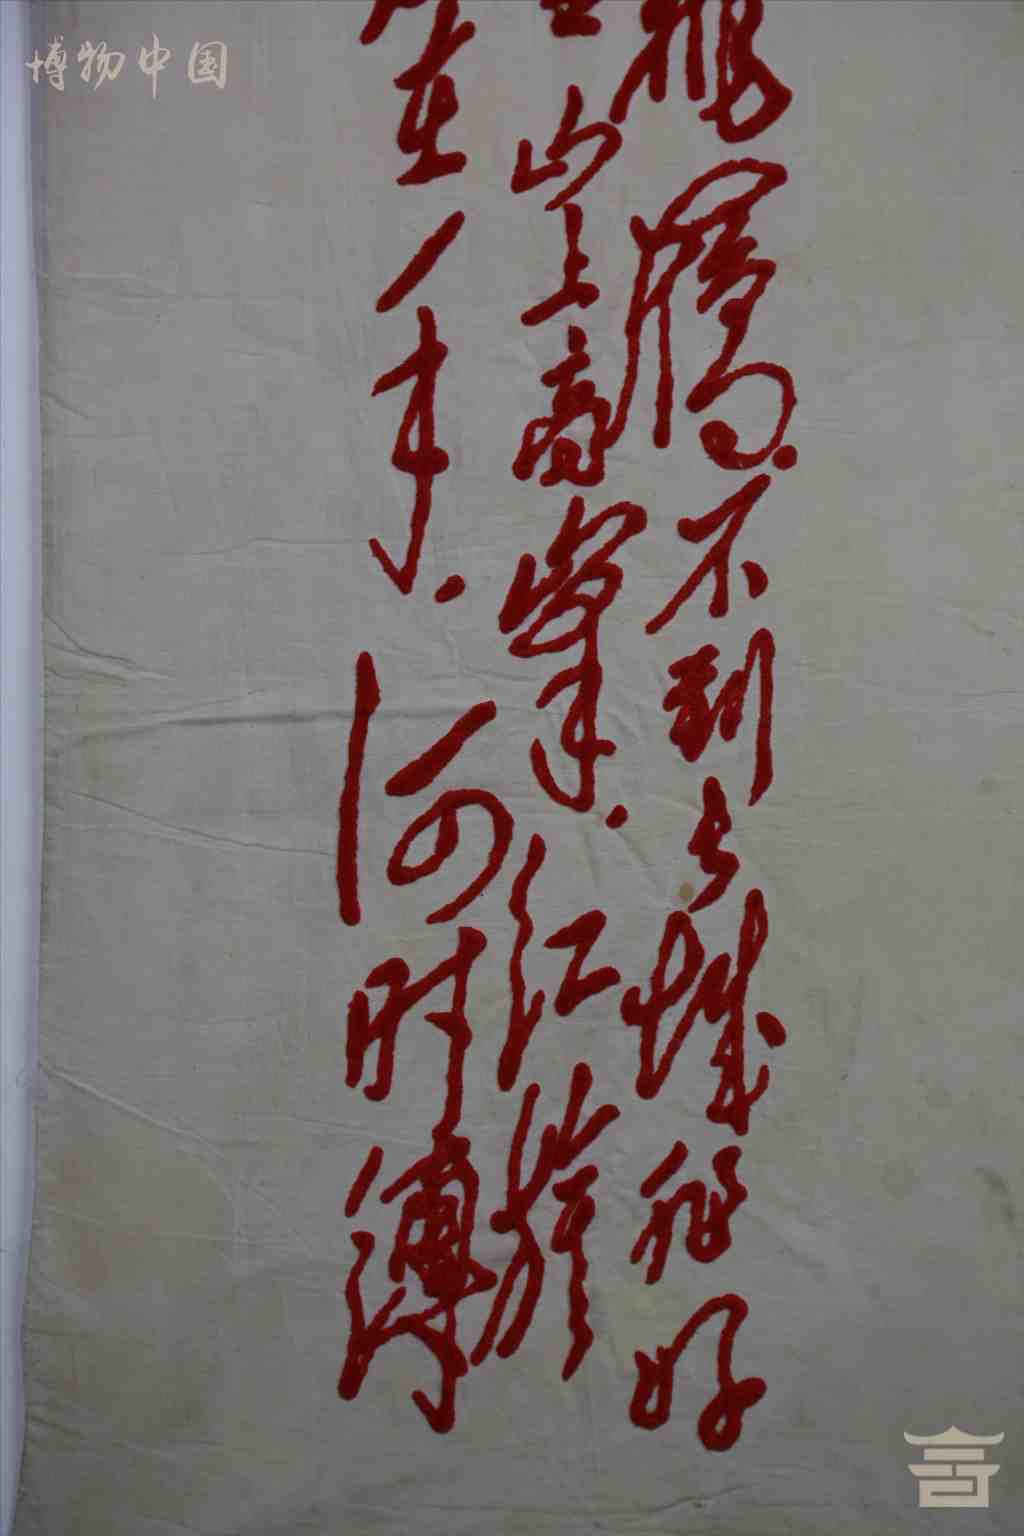 博物中国
雁.不到长城非好
山上高峰.红旗
在手.何时缚